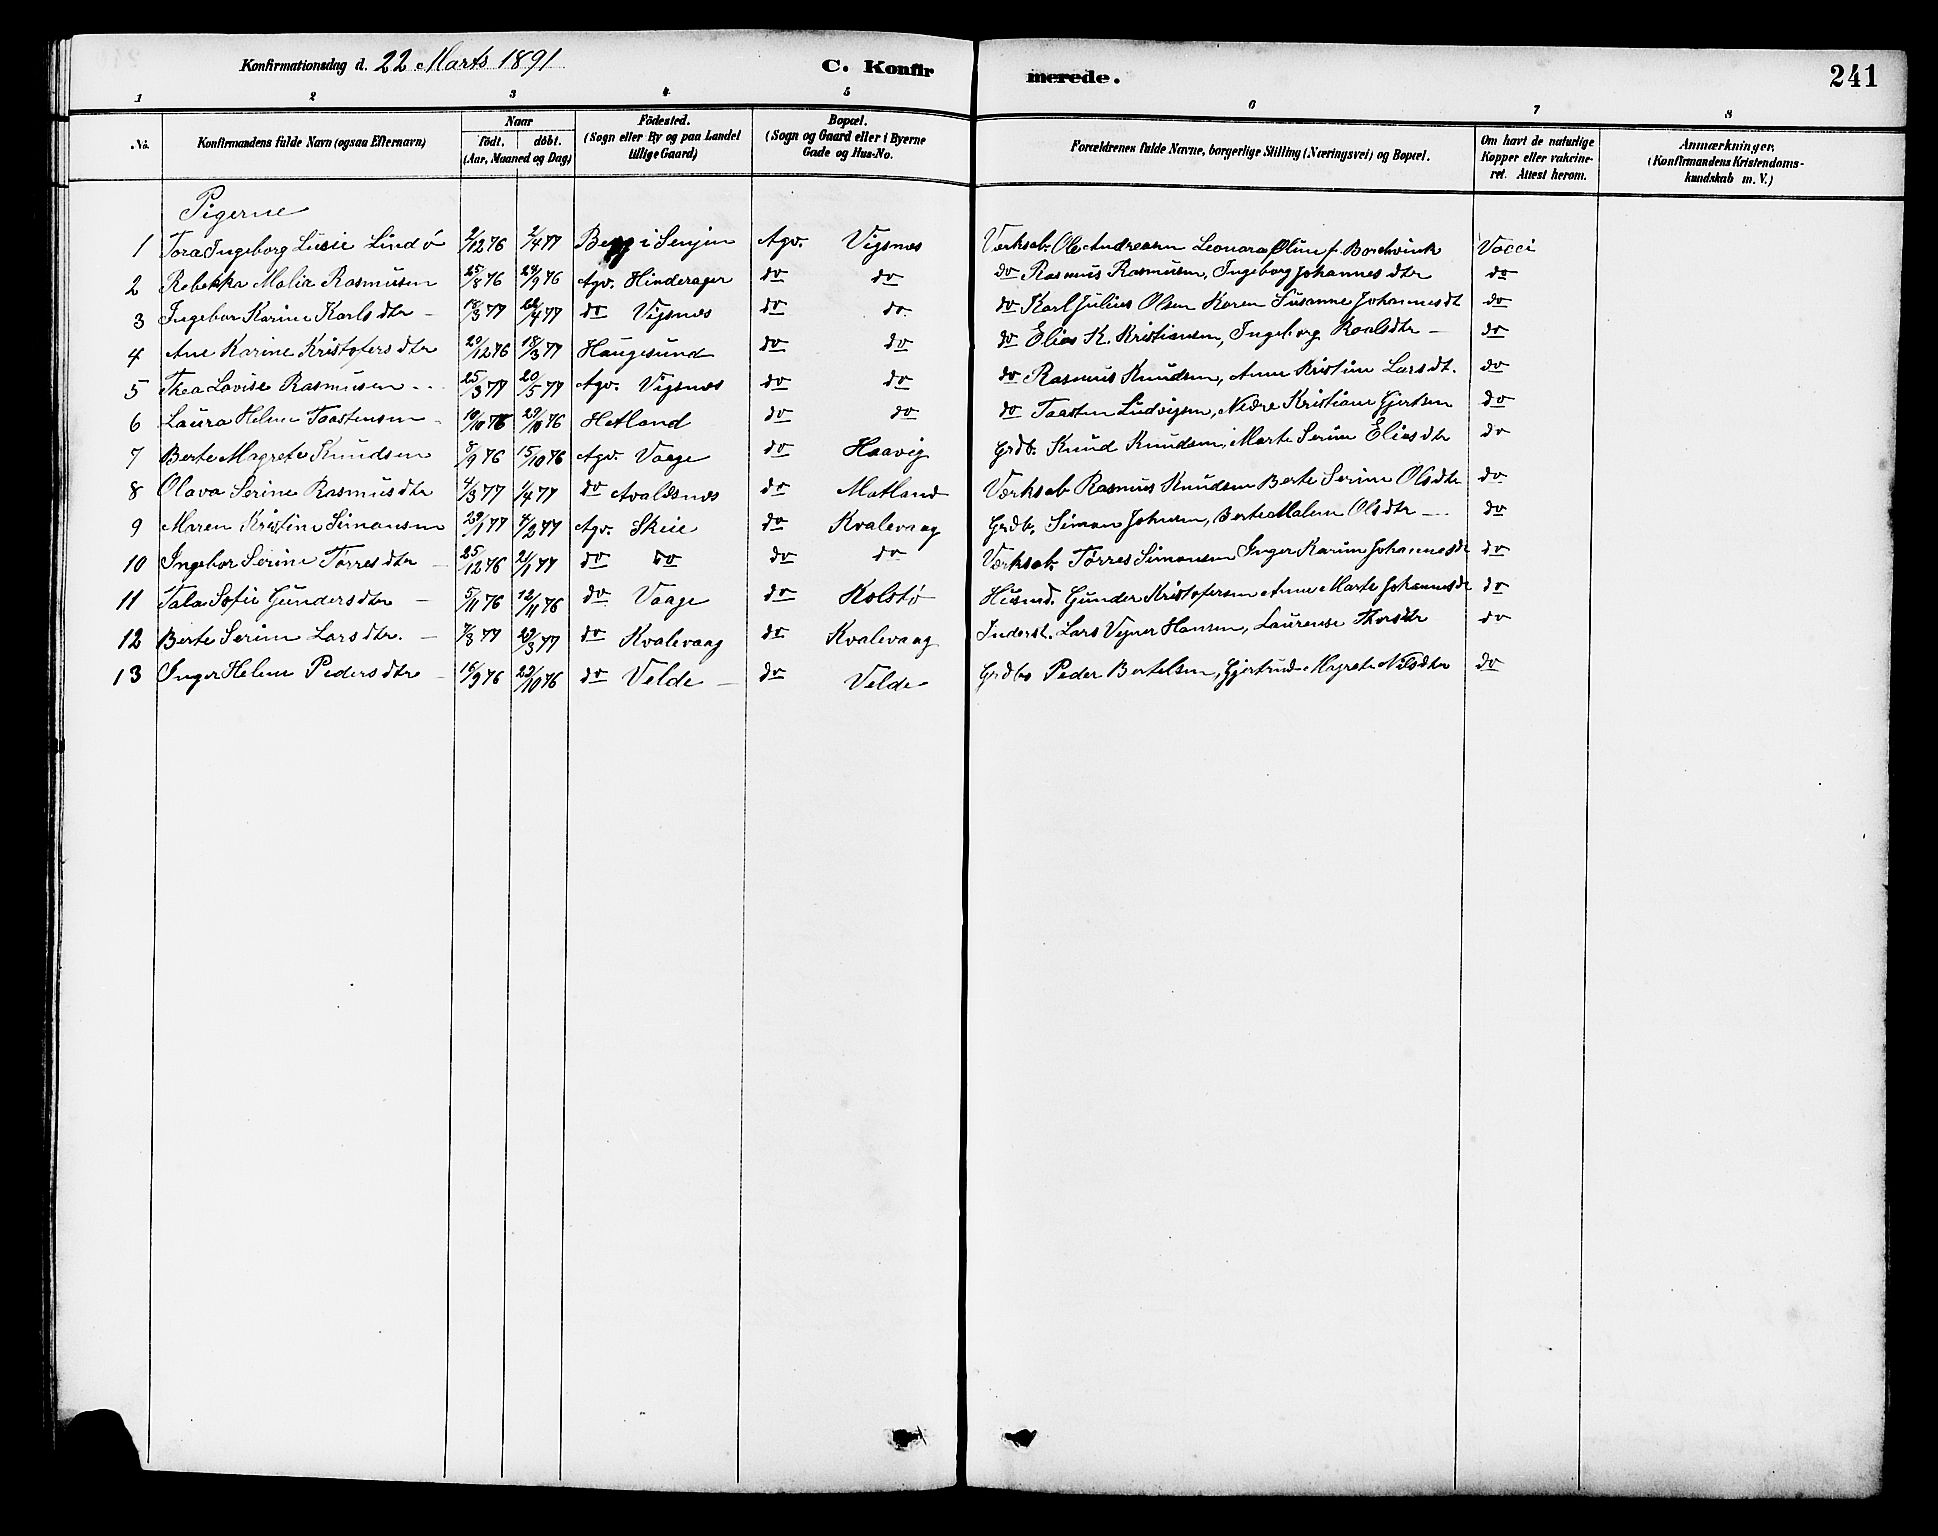 Konfirmationsdag d. 22 Marts 1891 C. Konfir merede. 241
1 2 3 4 5 6 7 8
No. Konfirmandens fulde Navn (ogsaa Efternavn) Naar födt, döbt. (Aar, Maaned og Dag) Födested. (Sogn eller By og paa Landet tillige Gaard) Bopæl. (Sogn og Gaard eller i Byerne Gade og Hus-No. Forældrenes fulde Navne, borgerlige Stilling (Næringsvei) og Bopæl. Om havt de naturlige Kopper eller vakcineret. Attest herom. Anmærkninger, (Konfirmandens Kristendomskundskab m. V.)
Pigerne
1 Tora Ingeborg Lusie Lindø 2/12 76 2/4 77 i Senjen Agv. Vigsnes Værksab. Ole Andreasen Leonora Oline f. Borchvink Vacci
2 Rebekka Malia Rasmusen 25/8 76 24/9 76 Agv. Hinderager do do do Rasmus Rasmusen, Ingeborg Johannesdtr do
3 Ingebor Karine Karlsdtr - 18/3 77 22/4 77 do Vigsnes do do do Karl Julius Olsen Karen Susanne Johannesdt do
4 Ane Karine Kristofersdtr 20/12 76 18/3 77 Haugesund do do do Elias K. Kristiansen, Ingeborg Roalsdtr - do
5 Thea Lovise Rasmusen - - 25/3 77 20/5 77 Agv. Vigsnes do do do Rasmus Knudsen, Anne Kristine Larsdt. do
6 Laura Helene Taastensen - 19/10 76 29/10 76 Hetland do do do Taasten Ludvigsen, Nedre Kristiane Gjertsen do
7 Berte Magrete Knudsen 8/9 76 15/10 76 Agv. Vaage do Haavig Grdb. Knud Knudsen, Marte Serine Eliasdtr do
8 Olava Serine Rasmusdtr 4/3 77 1/4 77 do Avaldsnes do Matland Værksab Rasmus Knudsen Berte Serine Olsdtr do
9 Maren Kristine Simonsen 29/1 77 4/2 77 Agv. Skeie do Kvalevaag Grdb, Simon Johnsen, Berte Malene Olsdtr - - do
10 Ingebor Serine Tørresdtr - 25/12 76 21/1 77 do do do do Værksab. Tørres Simonsen Inger Karine Johannesdt do
11 Tala Sofie Gundersdtr - 5/11 76 12/11 76 do Vaage do Kolstø Husmd. Gunder Kristofersen Anne Marte Johannesdt do
12 Berte Serine Larsdtr. - 7/3 77 29/3 77 do Kvalevaag do Kvalevaag Inderst. Lars Vejner Hansen, Laurense Thorsdtr do
13 Inger Helene Pedersdtr - 16/9 76 23/10 76 do Velde - do Velde Grdbr Peder Bertelsen, Gjertrud Magrete Nilsdtr do